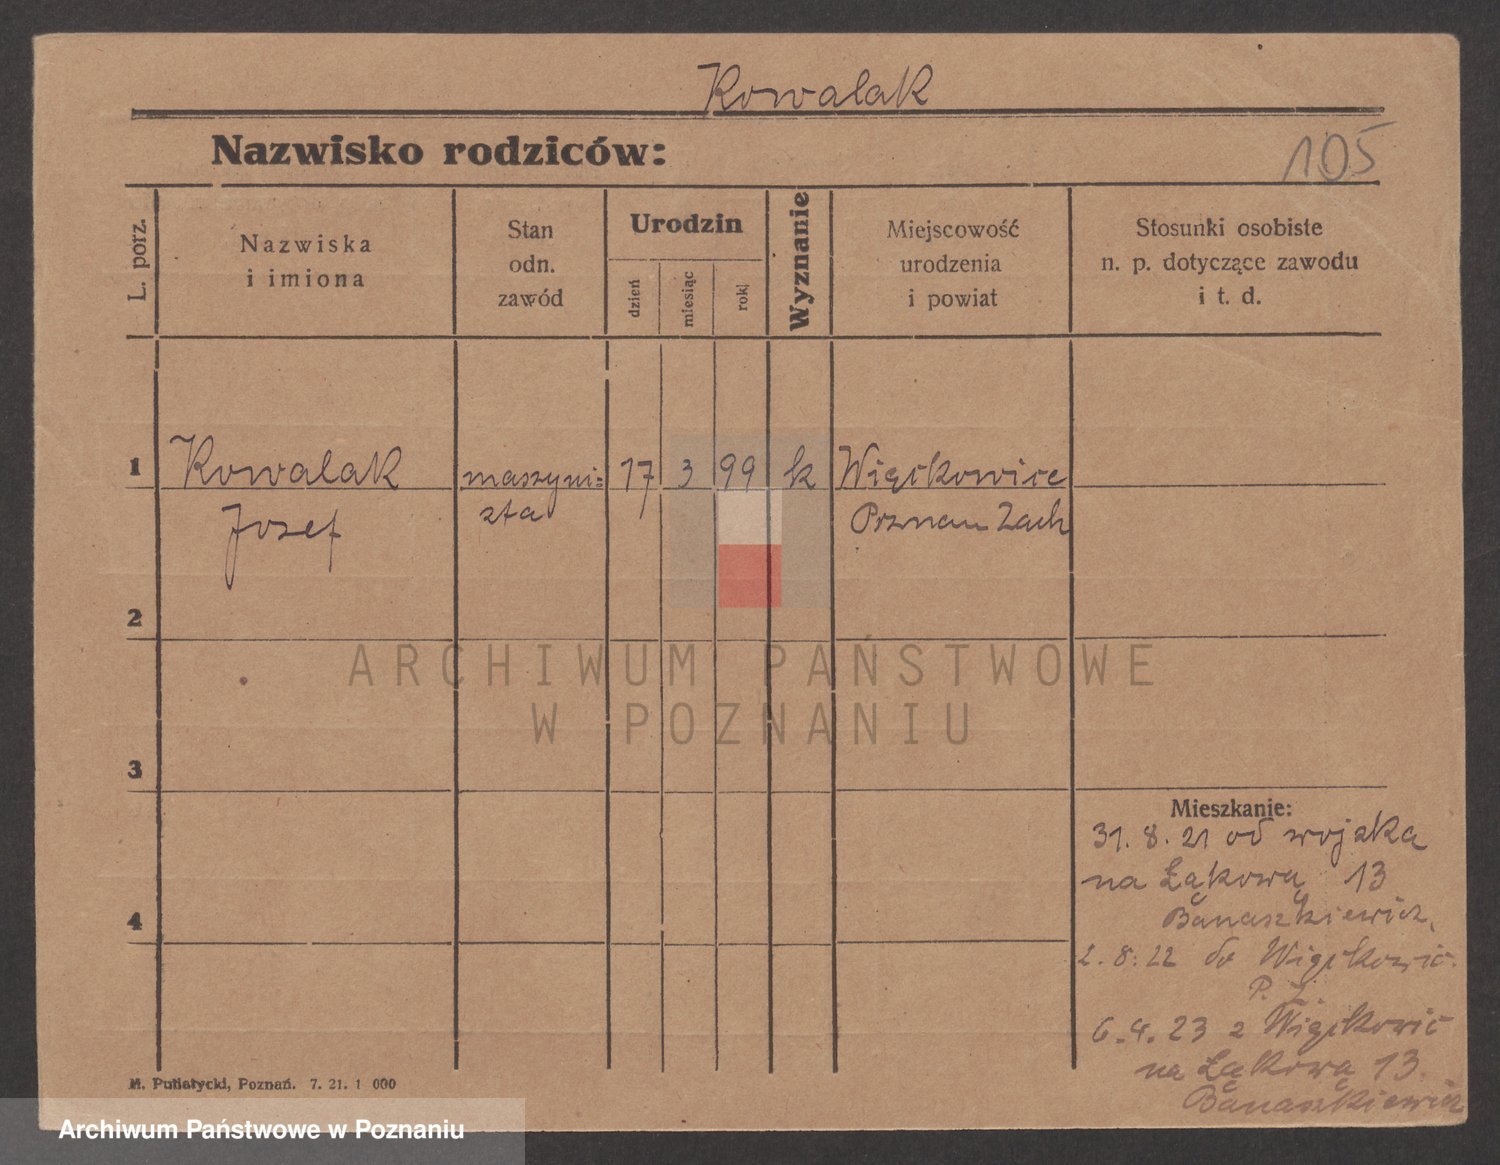 Kowalak
Nazwisko rodziców:
105
L. porz.
Nazwiska
i imiona
Stan
odn.
zawód
Urodzin
dzień
miesiąc
rok
Wyznanie
Miejscowość
urodzenia
i powiat
Stosunki osobiste
n. p. dotyczące zawodu
i t. d.
1
Kowalak
Jozef
maszyni=
sta
17
3
99
k
Więckowice
Poznan Zach
2
ARCHIWUM PAŃSTWOWE
W POZNANIU
3
Mieszkanie:
31. 8. 21 od wojska
na Łąkową 13
Banaszkiewicz.
4
2. 8. 22 do Więckowic
P. Z.
6. 4. 23 z Więckowic
na Łąkową 13.
Banaszkiewicz
M. Putiatycki, Poznań. 7. 21. 1 000
Archiwum Państwowe w Poznaniu